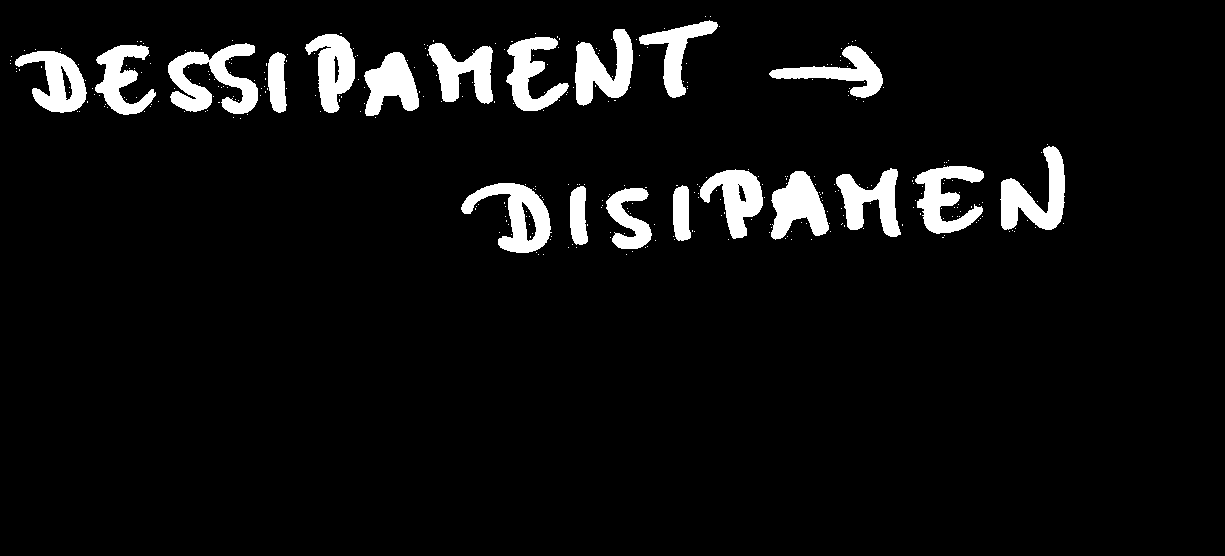 DESSIPAMENT →
DISIPAMEN